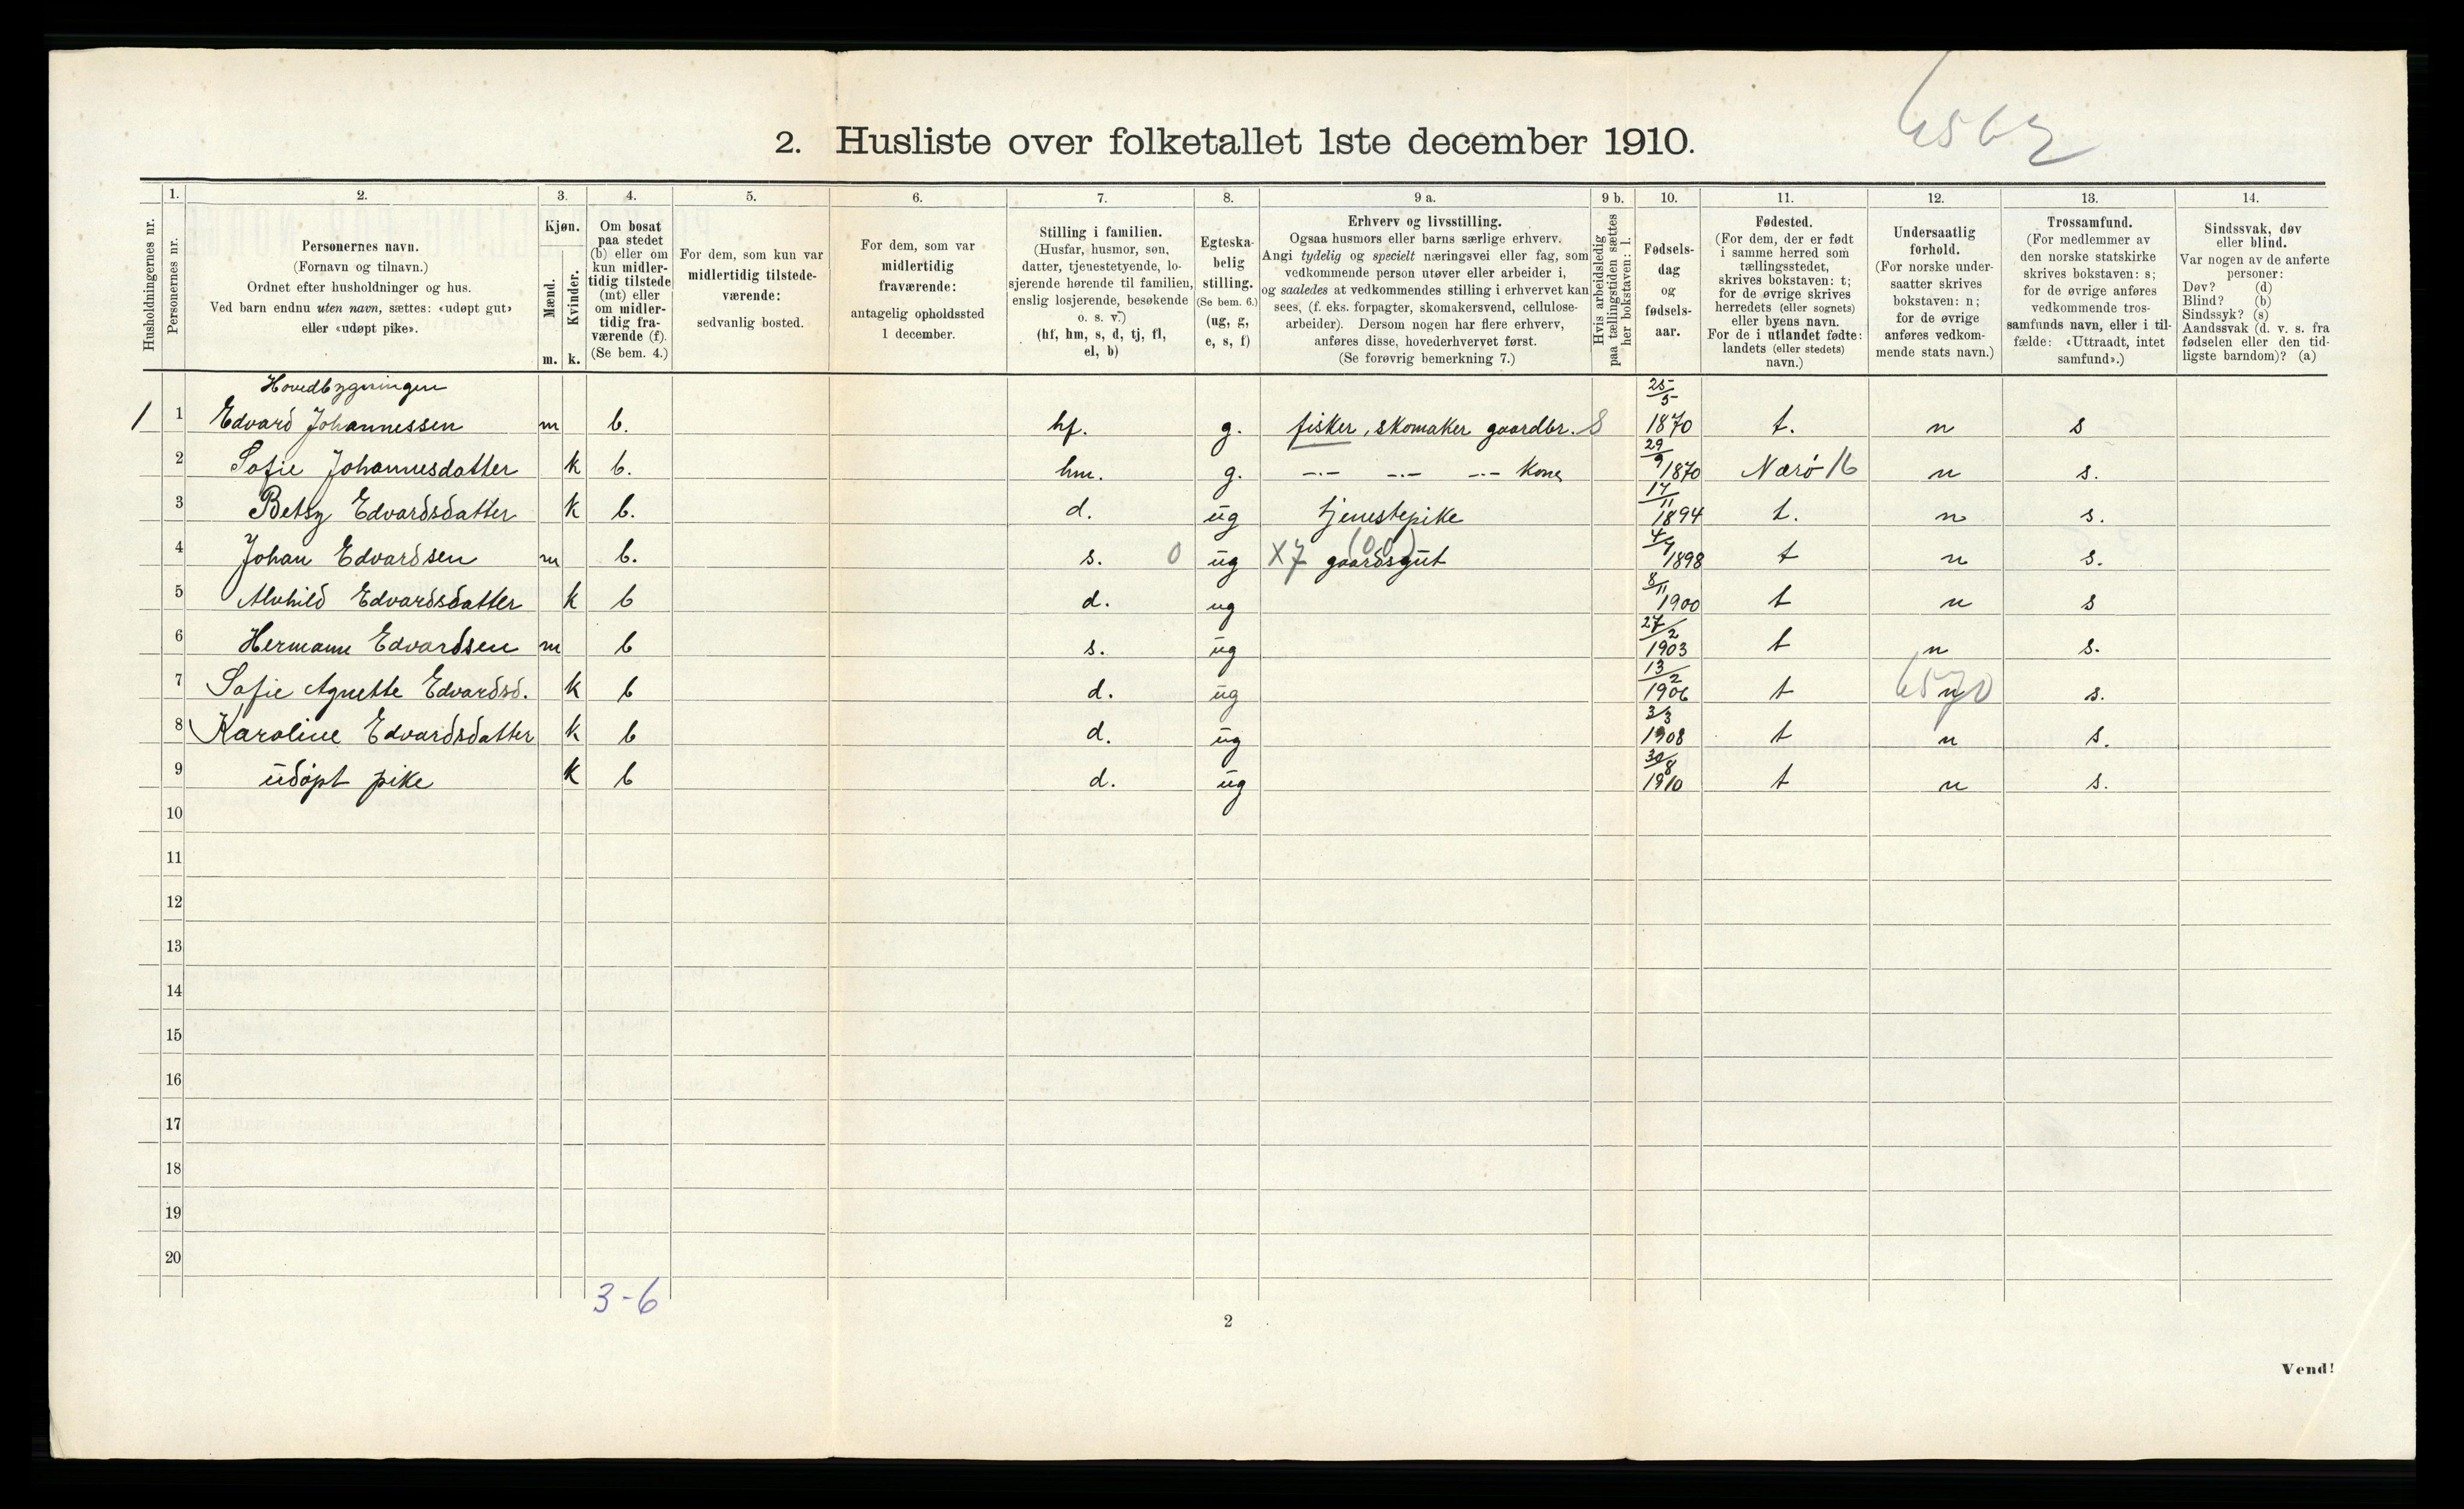 2. Husliste over folketallet 1ste december 1910.
1. 2. 3. 4. 5. 6. 7. 8. 9 a. 9 b. 10. 11. 12. 13. 14.
Husholdningernes nr.
Personernes nr.
Personernes navn.
(Fornavn og tilnavn.)
Ordnet efter husholdninger og hus.
Ved barn endnu uten navn, sættes: «udøpt gut»
eller «udøpt pike».
Kjøn.
Mænd.
Kvinder.
m. k.
Om bosat
paa stedet
(b) eller om
kun midler-
tidig tilstede
(mt) eller
om midler-
tidig fra-
værende (f).
(Se bem. 4.)
For dem, som kun var
midlertidig tilstede-
værende:
sedvanlig bosted.
For dem, som var
midlertidig
fraværende:
antagelig opholdssted
1 december.
Stilling i familien.
(Husfar, husmor, søn,
datter, tjenestetyende, lo-
sjerende hørende til familien,
enslig losjerende, besøkende
o. s. v.)
(hf, hm, s, d, tj, fl,
el, b)
Egteska-
belig
stilling.
(Se bem. 6.)
(ug, g,
e, s, f)
Erhverv og livsstilling.
Ogsaa husmors eller barns særlige erhverv.
Angi tydelig og specielt næringsvei eller fag, som
vedkommende person utøver eller arbeider i,
og saaledes at vedkommendes stilling i erhvervet kan
sees, (f. eks. forpagter, skomakersvend, cellulose-
arbeider). Dersom nogen har flere erhverv,
anføres disse, hovederhvervet først.
(Se forøvrig bemerkning 7.)
Hvis arbeidsledig
paa tællingstiden sættes
her bokstaven: l.
Fødsels-
dag
og
fødsels-
aar.
Fødested.
(For dem, der er født
i samme herred som
tællingsstedet,
skrives bokstaven: t;
for de øvrige skrives
herredets (eller sognets)
eller byens navn.
For de i utlandet fødte:
landets (eller stedets)
navn.)
Undersaatlig
forhold.
(For norske under-
saatter skrives
bokstaven: n;
for de øvrige
anføres vedkom-
mende stats navn.)
Trossamfund.
(For medlemmer av
den norske statskirke
skrives bokstaven: s;
for de øvrige anføres
vedkommende tros-
samfunds navn, eller i til-
fælde: «Uttraadt, intet
samfund».)
Sindssvak, døv
eller blind.
Var nogen av de anførte
personer:
Døv? (d)
Blind? (b)
Sindssyk? (s)
Aandssvak (d. v. s. fra
fødselen eller den tid-
ligste barndom)? (a)
Hovedbygningen
1 1 Edvard Johannessen m b. hf. g. fisker, skomaker gaardbr. 25/5 1870 t. n s
2 Sofie Johannesdatter k b. hm. g. -·- -·- -·- Kone 29/9 1870 Nærö 16 n s.
3 Betsy Edvardsdatter k b. d. ug tjenestepike 17/11 1894 t. n s.
4 Johan Edvardsen m b. s. 0 ug X7 gaardsgut (00) 4/9 1898 t n s.
5 Alvhild Edvardsdatter k b d. ug 8/11 1900 t n s
6 Hermann Edvardsen m b s. ug 27/2 1903 t n s.
7 Sofie Agnette Edvardsd. k b d. ug 13/2 1906 t n 6570 s.
8 Karoline Edvardsdatter k b d. ug 3/3 1908 t n s.
9 udöpt pike k b d. ug 30/8 1910 t n s.
10
11
12
13
14
15
16
17
18
19
20
3-6
2
Vend!